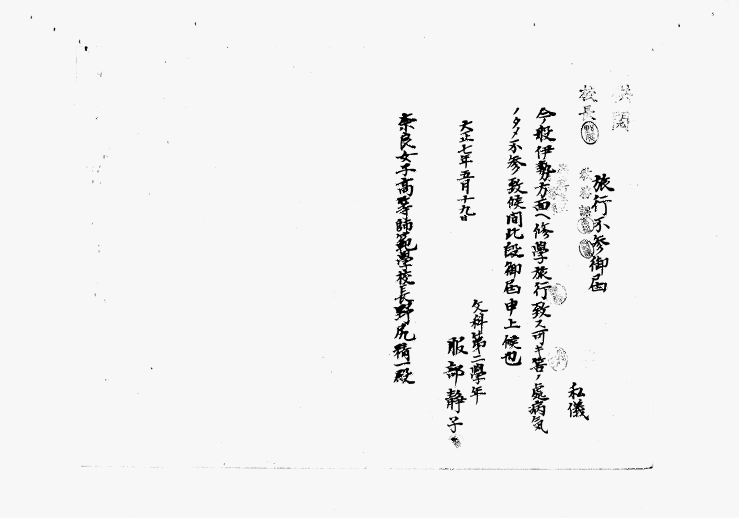 供閲
校長
旅行不参御届
私儀
今般伊勢方面ヘ修學旅行致ス可キ筈ノ處病気
ノタメ不参致候間此段御届申上候也
大正七年五月十九日
文科第二學年
服部静子
奈良女子高等師範學校長野尻精一殿